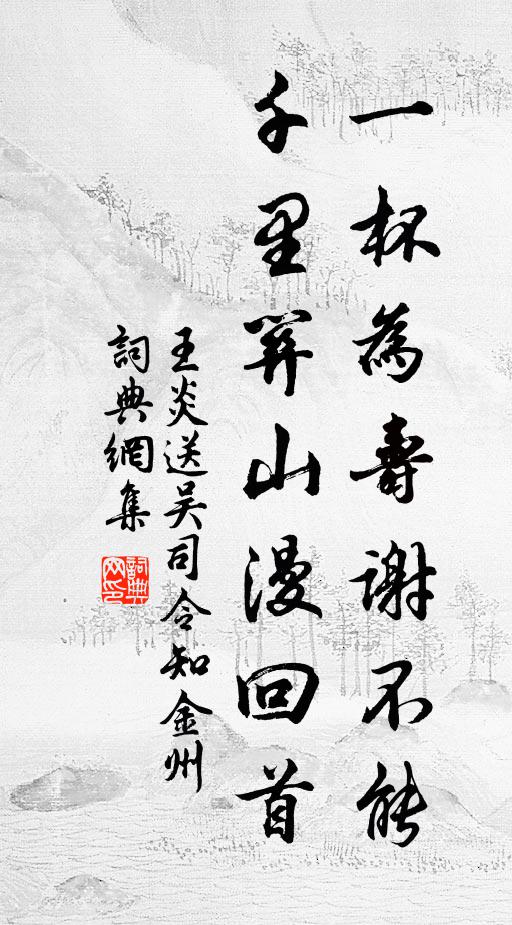 一杯為壽謝不能
千里關山漫回首
王炎送吴司令知金州
詞典網集
詞典网印